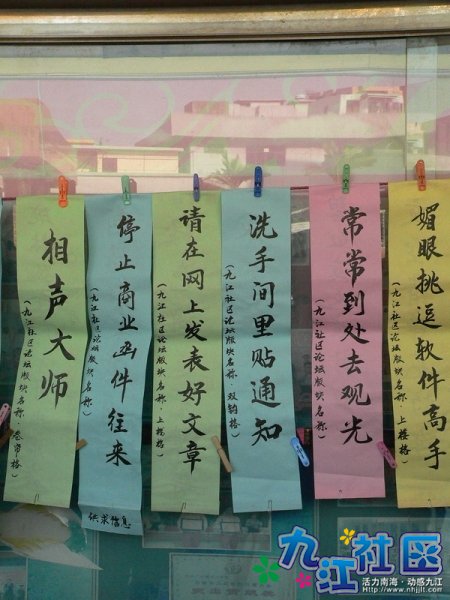 相声大师
(九江社区论坛版块名称·卷帘格)
停止商业函件往来
(九江社区论坛版块名称)
供求信息
请在网上发表好文章
(九江社区论坛版块名称·上楼格)
洗手间里贴通知
(九江社区论坛版块名称·双钩格)
常常到处去观光
(九江社区论坛版块名称)
媚眼挑逗软件高手
(九江社区论坛版块名称·上楼格)
九江社区
活力南海·动感九江
Http://www.nhjjlt.com